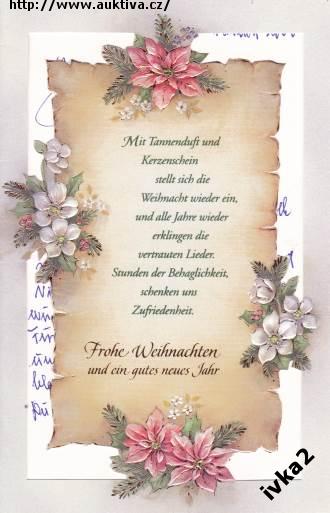 http://www.auktiva.cz/
Mit Tannenduft und
Kerzenschein
stellt sich die
Weihnacht wieder ein,
und alle Jahre wieder
erklingen die
vertrauten Lieder.
Stunden der Behaglichkeit,
schenken uns
Zufriedenheit.
Frohe Weihnachten
und ein gutes neues Jahr
ivka2